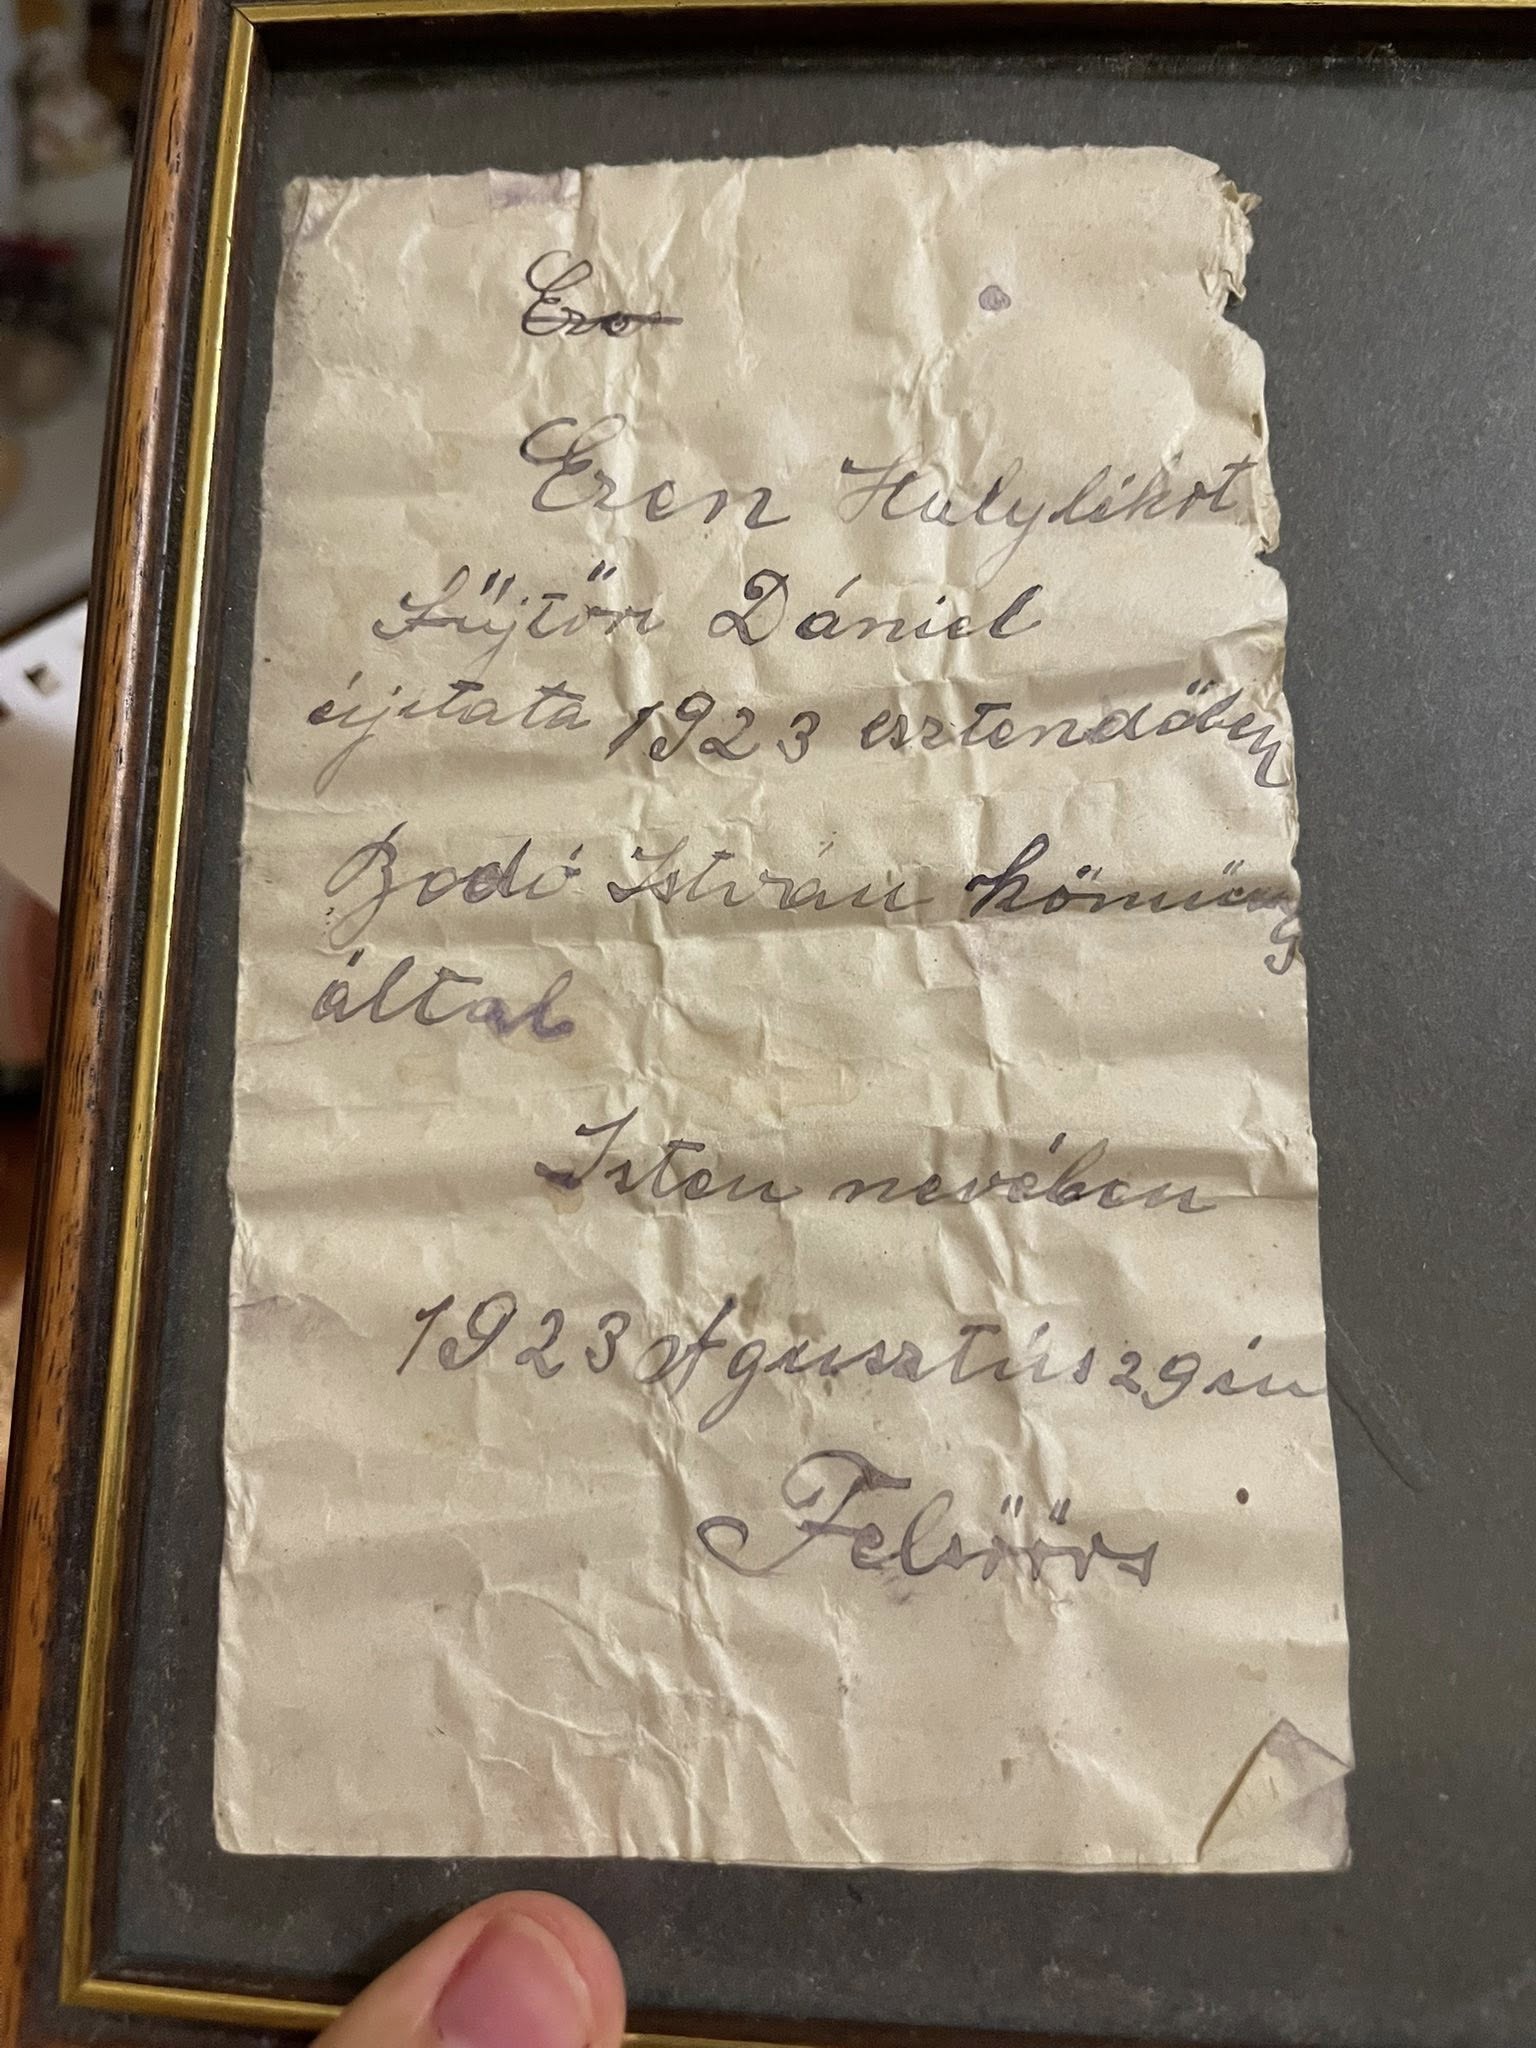 Ezo
Ezen Halylékot
Fűjtőr Dániel
újitata 1923 esztendőben
Bodó István kömües
által
Isten nevében
1923 Agusztús 29 én
Felsőörs